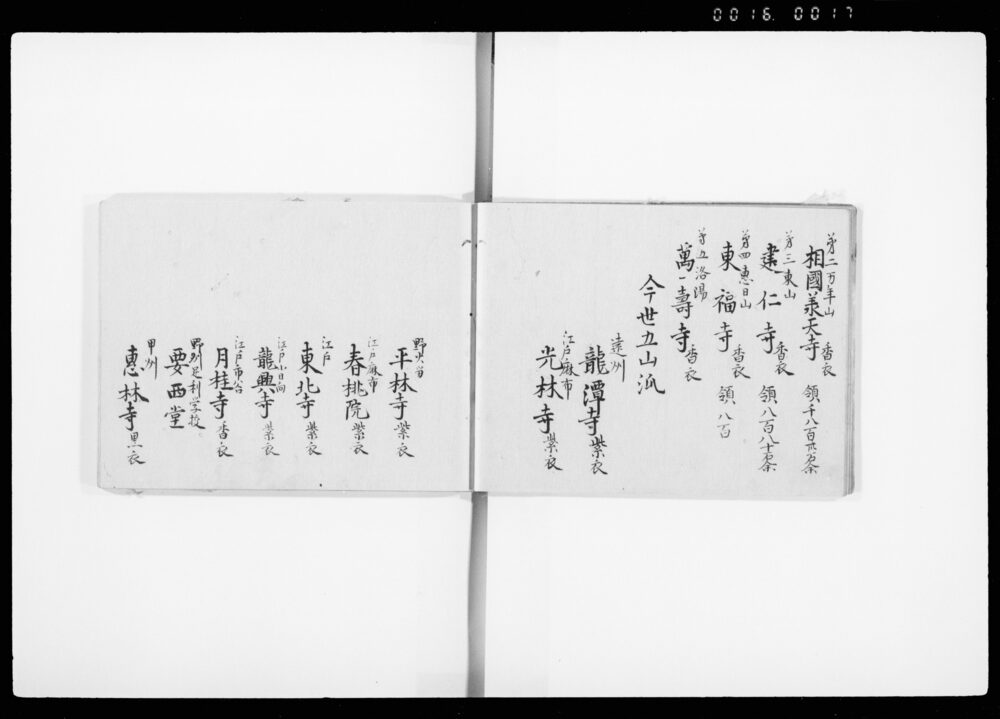 0016 0017
第二万年山
相國承天寺 香衣 領千八百廿万余
第三東山
建仁寺 香衣 領八百八十余
第四惠日山
東福寺 香衣 領八百
第五洛陽
萬壽寺 香衣
今世五山派
遠州
龍潭寺 紫衣
江戸麻布
光林寺 紫衣
野火留
平林寺 紫衣
江戸麻布
春桃院 紫衣
江戸
東北寺 紫衣
江戸小日向
龍興寺 紫衣
江戸市谷
月桂寺 香衣
野州足利学校
要西堂
甲州
惠林寺 黒衣